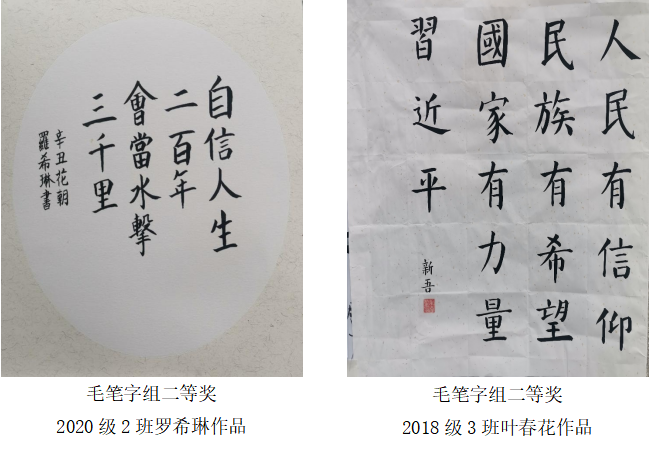 自信人生
二百年
會當水擊
三千里
辛丑花朝
羅希琳書
人民有信仰
民族有希望
國家有力量
習近平
新吾
毛笔字组二等奖
2020 级 2 班罗希琳作品
毛笔字组二等奖
2018 级 3 班叶春花作品